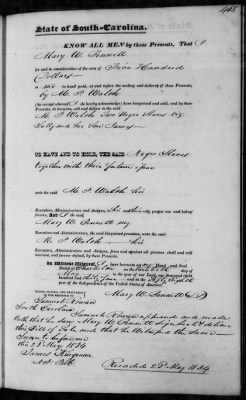 State of South-Carolina.
KNOW ALL MEN by these Presents, That I
Mary W. Sinnett
for and in consideration of the sum of Five Hundred
Dollars
to me in hand paid, at and before the sealing and delivery of these Presents,
by M. P. Walsh
(the receipt whereof I do hereby acknowledge) have bargained and sold, and by these
Presents, do bargain, sell and deliver to the said
M. P. Walsh Two Negro Slaves viz
and his Son James
TO HAVE AND TO HOLD, THE SAID Negro Slaves
together with their future issue
unto the said M. P. Walsh his
Executors, Administrators and Assigns, to his only proper use and behoof
forever. And I the said
Mary W. Sinnett my
Executors, Administrators, the said bargained premises, unto the said
M. P. Walsh his
Executors, Administrators and Assigns, from and against all persons shall and will
warrant, and forever defend, by these Presents.
In Witness Whereof, I have hereunto set my Hand and Seal
Dated at Charleston on the
day of May in the year of our Lord, one thousand eight
hundred and thirty four and in the Fifty Eighth
year of the Independence of the United States of America.
SIGNED, SEALED, AND DELIVERED
IN THE PRESENCE OF
Mary W. Sinnett
South Carolina
Samuel appeared and made
oath that he saw Mary W. Sinnett sign seal & deliver
this Bill of Sale and that he witnessed the same
Sworn to before me
this 23 May 1834
James
Not. Pub.
Recorded 23 May 1834